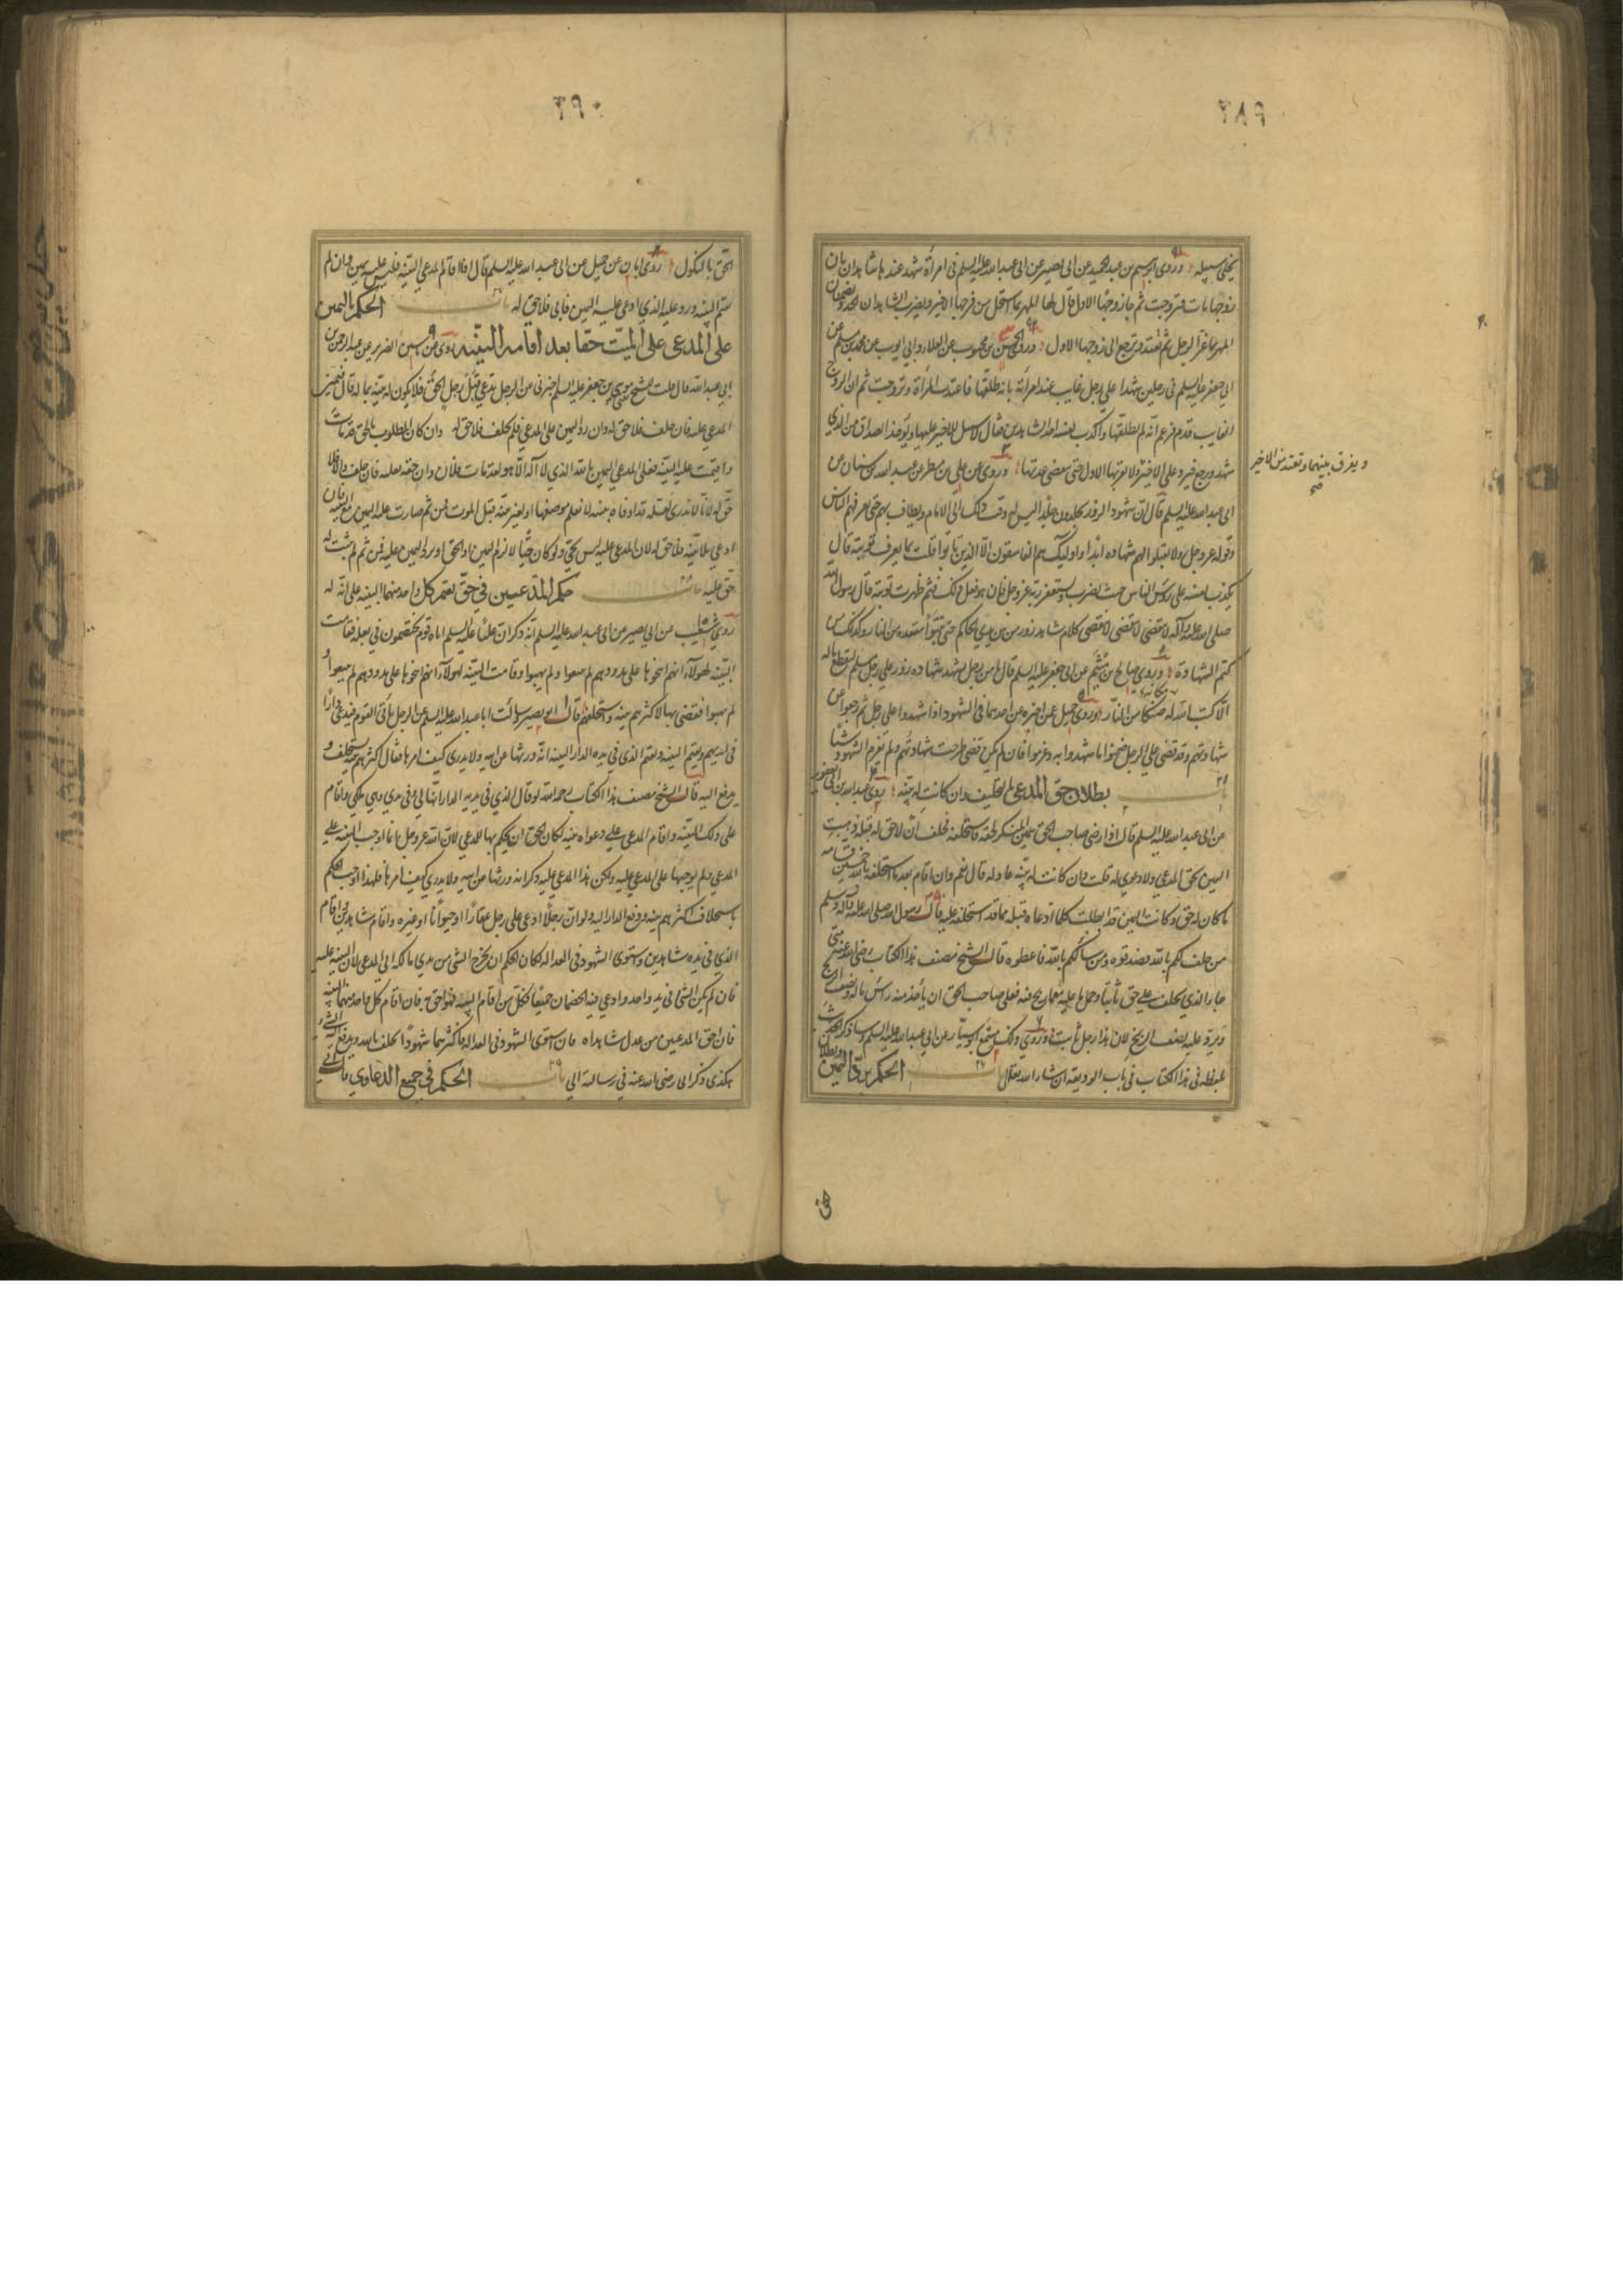 يخلى سبيله وروى ابرهيم بن عبد الحميد عن ابى بصير عن ابى عبد الله عليه السلم فى امرأة شهد عندها شاهدان بان
زوجها مات فتزوجت ثم جاء زوجها الاول قال لها المهر بما استحل من فرجها الاخير ويضرب الشاهدان الحد ويضمنان
المهر بما غرّا الرجل ثم تعتد وترجع الى زوجها الاول وروى الحسن بن محبوب عن العلا وابى ايوب عن محمد بن مسلم عن
ابى جعفر عليه السلم فى رجلين شهدا على رجل غايب عند امرأته بانه طلقها فاعتدت المرأة وتزوجت ثم ان الزوج
الغايب قدم فزعم انه لم يطلقها واكذب نفسه احد الشاهدين فقال لا سبيل للاخير عليها ويؤخذ الصداق من الذى
شهد ورجع فيرد على الاخير ولا يقربها الاول حتى تنقضى عدتها وروى عن على بن مطر عن عبد الله بن سنان عن
ويفرق بينهما وتعتد من الاخير صح
ابى عبد الله عليه السلم قال ان شهود الزور يجلدون جلدا ليس له وقت ذلك الى الامام ويطاف بهم حتى يعرفهم الناس
وقوله عز وجل ولا تقبلوا لهم شهادة ابدا واولئك هم الفاسقون الا الذين تابوا قلت بما يعرف توبته قال
يكذب نفسه على رؤس الناس حيث يضرب ويستغفر ربه عز وجل فان هو فعل ذلك فثم ظهرت توبته وقال رسول الله
صلى الله عليه وآله لا ينقضى كلام شاهد زور من بين يدى الحاكم حتى يتبوأ مقعده من النار وكذلك من
كتم الشهادة وروى صالح بن ميثم عن ابى جعفر عليه السلم قال ما من رجل يشهد شهادة زور على رجل مسلم ليقطع ماله
الا كتب الله له مكانه صكا من النار وروى جميل عن اخبره عن احدهما فى الشهود اذا شهدوا على رجل ثم رجعوا عن
شهادتهم وقد قضى على الرجل ضمنوا ما شهدوا به وغرموا فان لم يكن قضى طرحت شهادتهم ولم يغرم الشهود شيئا
باب بطلان حق المدعى بالتحليف وان كانت له بينة روى عبد الله بن ابى يعفور
عن ابى عبد الله عليه السلم قال اذا رضى صاحب الحق بيمين المنكر لحقه فاستحلفه فحلف ان لا حق له قبله ذهبت
اليمين بحق المدعى ولا دعوى له قلت وان كانت له بينة عادلة قال نعم وان اقام بعد ما استحلفه بالله خمسين قسامة
ما كان له حق وكانت اليمين قد ابطلت كلما ادعاه قبله مما قد استحلفه عليه قال رسول الله صلى الله عليه وآله وسلم
من حلف لكم بالله فصدقوه ومن سألكم بالله فاعطوه قال الشيخ مصنف هذا الكتاب رضى الله عنه متى
جاء الذى يحلف على حق تائبا وحمل ما عليه بما ربح فيه فعلى صاحب الحق ان يأخذ منه رأس ماله ونصف الربح
ويرد عليه نصف الربح لان هذا رجل تائب وروى ذلك مسمع ابو سيّار عن ابى عبد الله عليه السلم وساذكر الحديث
بلفظه فى هذا الكتاب فى باب الوديعة ان شاء الله تعالى باب الحكم برد اليمين وبطلان
الحق بالنكول روى ابان عن جميل عن ابى عبد الله عليه السلم قال اذا اقام المدعى البينة فليس عليه يمين وان لم
يقم البينة ورد عليه الذى ادعى عليه اليمين فابى فلا حق له باب الحكم باليمين
على المدعى على الميّت حقا بعد اقامة البيّنة روى عن ياسين الضرير عن عبد الرحمن بن
ابى عبد الله قال قلت للشيخ موسى بن جعفر عليه السلم اخبرنى عن الرجل يدعى قبل رجل الحق فلا يكون له بينة بماله قال فيمين
المدعى عليه فان حلف فلا حق له وان رد اليمين على المدعى فلم يحلف فلا حق له وان كان المطلوب بالحق قد مات
واقيمت عليه البينة فعلى المدعى اليمين بالله الذى لا اله الا هو لقد مات فلان وان حقه لعليه فان حلف والا فلا
حق له لانا لا ندرى لعله قد اوفاه ببينة لا نعلم موضعها او بغير بينة قبل الموت فمن ثم صارت عليه اليمين مع البينة فان
ادعى بلا بينة فلا حق له لان المدعى عليه ليس بحىّ ولو كان حيّا لالزم اليمين او الحق او يرد اليمين عليه فمن ثم لم يثبت له
حق عليه باب حكم المدّعيين فى حق يقيم كل واحد منهما البينة على انّه له
روى شعيب عن ابى بصير عن ابى عبد الله عليه السلم انه ذكر ان عليا عليه السلم اتاه قوم يختصمون فى بغلة فقامت
البيّنه لهولاء انهم انتجوها على مذودهم لم يبيعوا ولم يهبوا وقامت البيّنة لهولاء انهم انتجوها على مذودهم لم يبيعوا و
لم يهبوا فقضى بها لاكثرهم بينة واستحلفهم قال ابو بصير وسألت ابا عبد الله عليه السلم عن الرجل يأتى القوم فيدعى دارا
فى ايديهم ويقيم البينة ويقيم الذى فى يده الدار البينة انه ورثها عن ابيه ولا يدرى كيف امرها فقال اكثرهم بينة يستحلف و
يدفع اليه قال الشيخ مصنف هذا الكتاب رحمه الله لو قال الذى فى يديه الدار انها لى وفى يدى وهى ملكى واقام
على ذلك البينة واقام المدعى على دعواه بينة لكان الحق ان يحكم بها للمدعى لان الله عز وجل انما اوجب البينة على
المدعى ولم يوجبها على المدعى عليه ولكن هذا المدعى عليه ذكر انه ورثها عن ابيه ولا يدرى كيف امرها فلهذا اوجب الحكم
باستحلاف اكثرهم بينة ودفع الدار اليه ولو ان رجلا ادعى على رجل عقارا او حيوانا او غيره واقام شاهدين واقام
الذى فى يده شاهدين واستوى الشهود فى العدالة لكان الحكم ان يخرج الشئ من يدى مالكه الى المدعى لان البينة عليه
فان لم يكن الشئ فى يد واحد وادعى فيه الخصمان جميعا فكل من اقام البينة فهو احق به فان اقام كل واحد منهما البينه
فان احق المدعيين من عدل شاهداه فان استوى الشهود فى العدالة فاكثرهما شهودا يحلف بالله ويدفع اليه الشئ
هكذى ذكر ابى رضى الله عنه فى رسالته الى باب الحكم فى جميع الدعاوى قال ابى